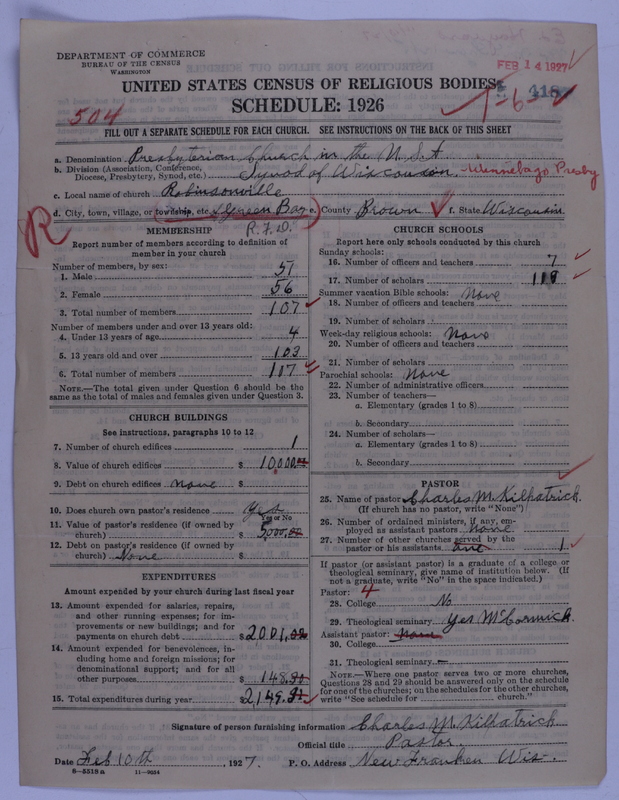 DEPARTMENT OF COMMERCE
BUREAU OF THE CENSUS
WASHINGTON
FEB 14 1927
UNITED STATES CENSUS OF RELIGIOUS BODIES
SCHEDULE: 1926
504
1-6-
418
FILL OUT A SEPARATE SCHEDULE FOR EACH CHURCH. SEE INSTRUCTIONS ON THE BACK OF THIS SHEET
a. Denomination Presbyterian Church in the U.S.A
b. Division (Association, Conference, Diocese, Presbytery, Synod, etc.) Synod of Wisconsin - Winnebago Presby
c. Local name of church Robinsonville
d. City, town, village, or township, etc. Green Bay e. County Brown f. State Wisconsin
R.F.D.
R
MEMBERSHIP
Report number of members according to definition of
member in your church
Number of members, by sex:
1. Male 51
2. Female 56
3. Total number of members 107
Number of members under and over 13 years old:
4. Under 13 years of age 4
5. 13 years old and over 103
6. Total number of members 117
NOTE.—The total given under Question 6 should be
same as the total of males and females given under Question 3.
CHURCH BUILDINGS
See instructions, paragraphs 10 to 12
7. Number of church edifices 1
8. Value of church edifices $ 10,000.00
9. Debt on church edifices None $
10. Does church own pastor's residence Yes
Yes or No
11. Value of pastor's residence (if owned by
church) $ 5000.00
12. Debt on pastor's residence (if owned by
church) None $
EXPENDITURES
Amount expended by your church during last fiscal year
13. Amount expended for salaries, repairs,
and other running expenses; for im-
provements or new buildings; and for
payments on church debt $ 2001.00
14. Amount expended for benevolences, in-
cluding home and foreign missions; for
denominational support; and for all
other purposes $ 148.80
15. Total expenditures during year $ 2149.80
CHURCH SCHOOLS
Report here only schools conducted by this church
Sunday schools:
16. Number of officers and teachers 7
17. Number of scholars 118
Summer vacation Bible schools: None
18. Number of officers and teachers
19. Number of scholars
Week-day religious schools: None
20. Number of officers and teachers
21. Number of scholars
Parochial schools: None
22. Number of administrative officers
23. Number of teachers—
a. Elementary (grades 1 to 8)
b. Secondary
24. Number of scholars—
a. Elementary (grades 1 to 8)
b. Secondary
PASTOR
25. Name of pastor Charles M. Kilpatrick
(If church has no pastor, write "None")
26. Number of ordained ministers, if any, em-
ployed as assistant pastors None
27. Number of other churches served by the
pastor or his assistants one 1
If pastor (or assistant pastor) is a graduate of a college or
theological seminary, give name of institution below. (If
not a graduate, write "No" in the space indicated.)
Pastor: 4
28. College No
29. Theological seminary Yes McCormick
Assistant pastor: None
30. College
31. Theological seminary
NOTE.—Where one pastor serves two or more churches,
Questions 28 and 29 should be answered only on the schedule
for one of the churches; on the schedules for the other churches,
write "See schedule for church."
Signature of person furnishing information Charles M. Kilpatrick
Official title Pastor
Date Feb 10th, 1927. P. O. Address New Franken Wis.
8-5518a 11-9024